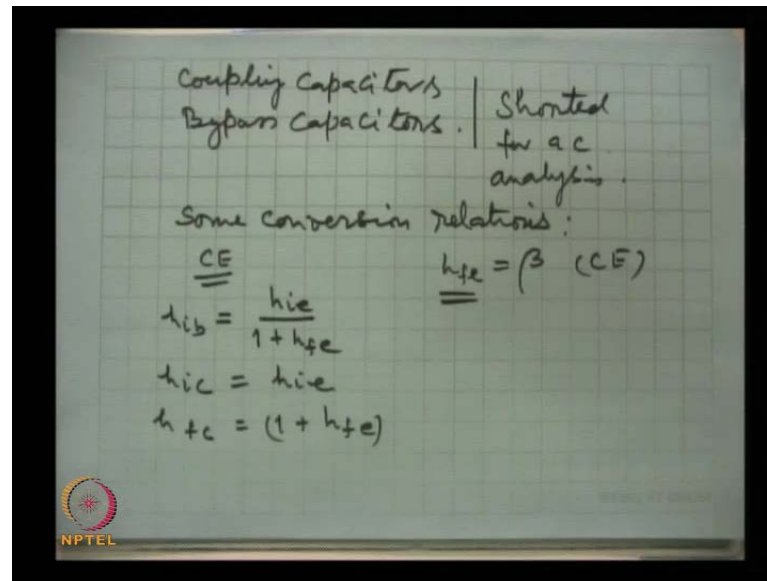 Coupling Capacitors
Bypass Capacitors.
Shorted
for a c
analysis.
Some conversion relations:
CE
hfe = β (CE)
hib = hie / 1 + hfe
hic = hie
hfc = (1 + hfe)
NPTEL